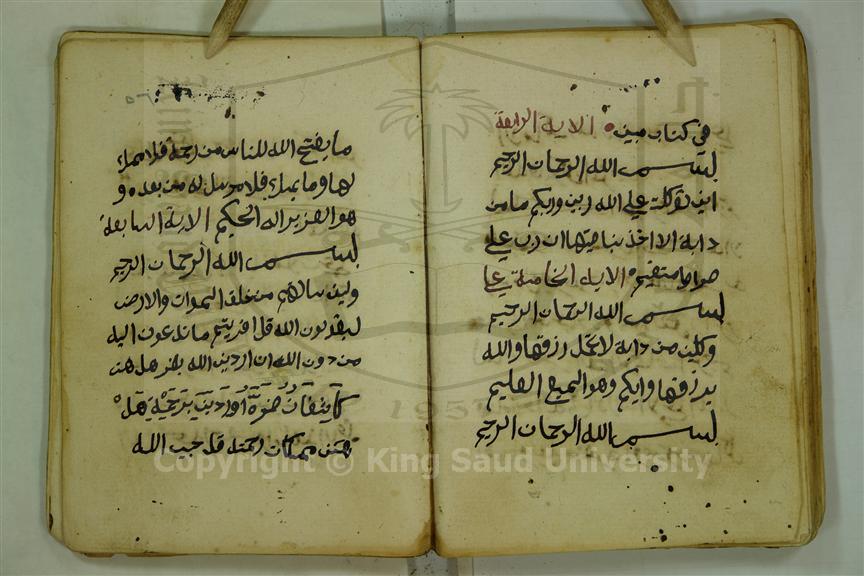 في كتاب مبين الاية الرابعة
بسم الله الرحمان الرحيم
اني توكلت علي الله ربي وربكم ما من
دابة الا اخذ بناصيتها ان ربي علي
صراط مستقيم الاية الخامسة
بسم الله الرحمان الرحيم
وكاين من دابة لا تحمل رزقها والله
يرزقها واياكم وهو السميع العليم
بسم الله الرحمان الرحيم
ما يفتح الله للناس من رحمة فلا ممسك
لها وما يمسك فلا مرسل له من بعده و
هو العزيز الحكيم الاية السابعة
بسم الله الرحمان الرحيم
ولين سالتهم من خلق السموات والارض
ليقولون الله قل افريتم ما تدعون اليه
من دون الله ان اردني الله بضر هل هن
كاشفات ضره او اردني برحمة هل
هن ممسكات رحمته قل حسبي الله
Copyright © King Saud University
1957